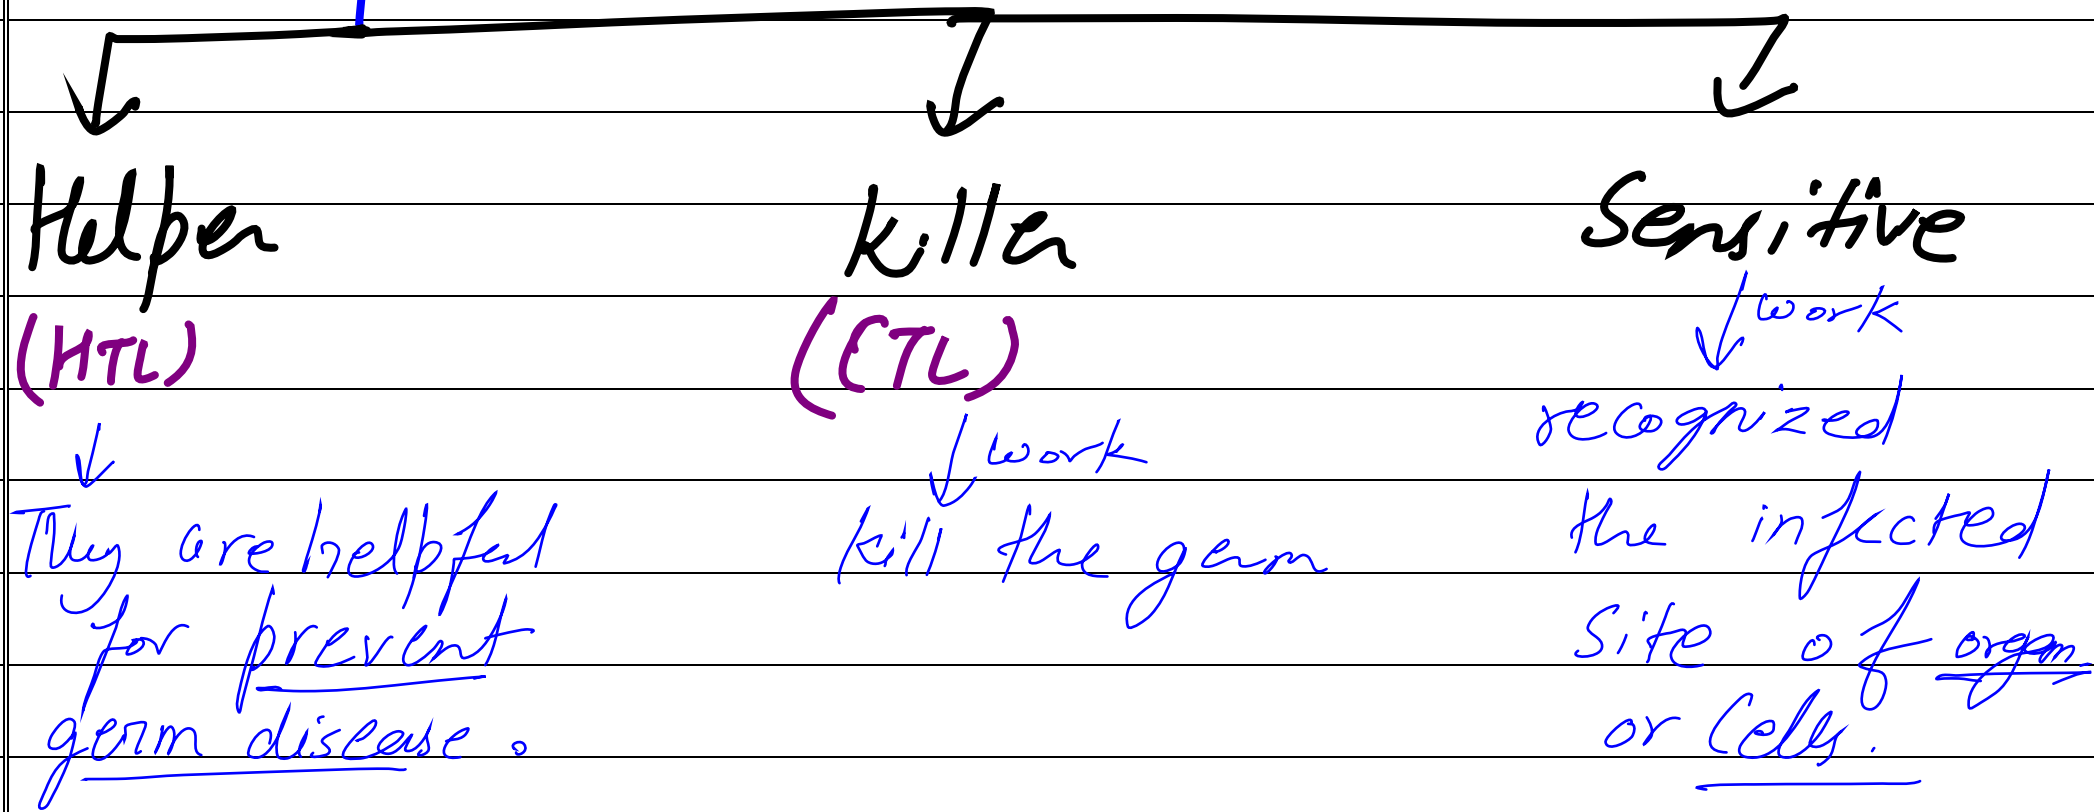 Helper
(HTL)
They are helpful
for prevent
germ disease.
killer
(CTL)
work
kill the germ
Sensitive
work
recognized
the infected
site of organ
or Cells.